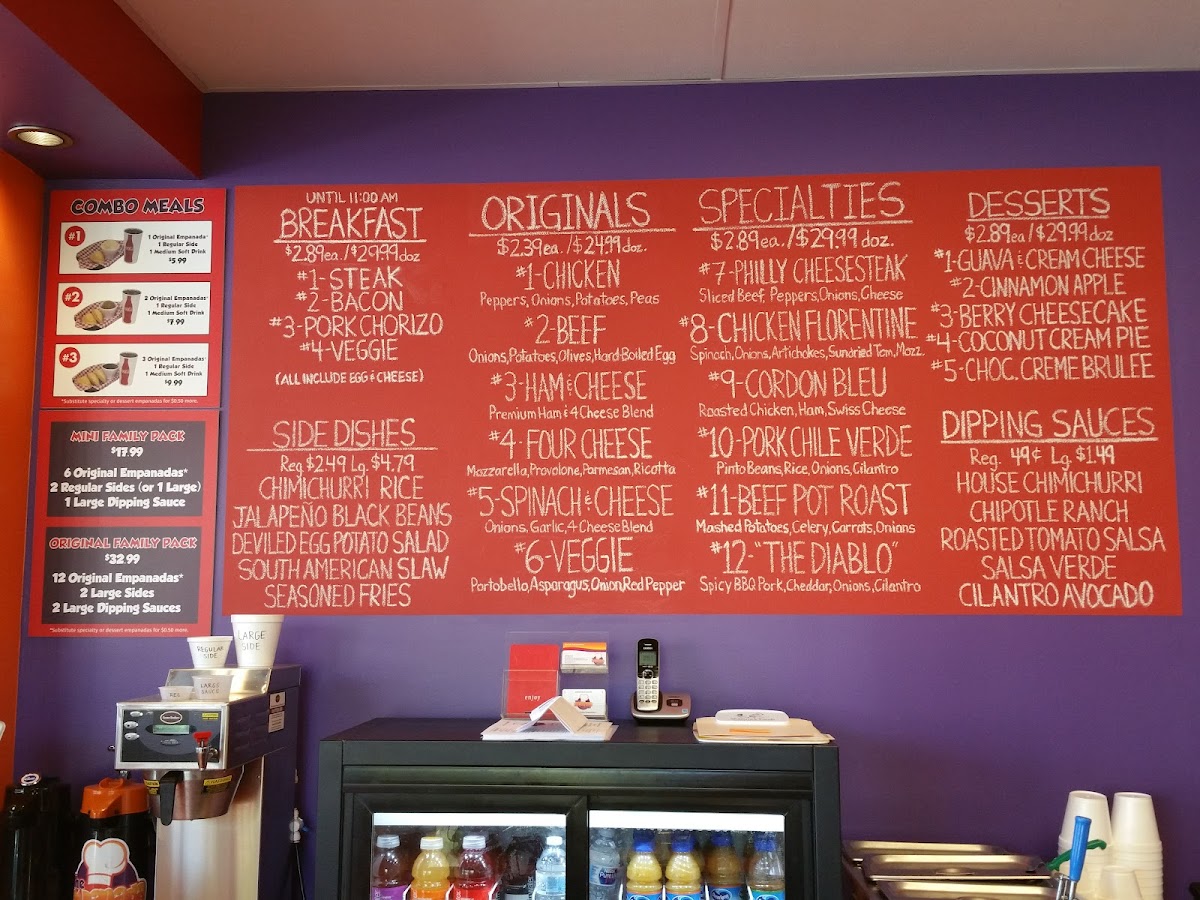 COMBO MEALS
#1
1 Original Empanada*
1 Regular Side
1 Medium Soft Drink
$5.99
#2
2 Original Empanadas*
1 Regular Side
1 Medium Soft Drink
$7.99
#3
3 Original Empanadas*
1 Regular Side
1 Medium Soft Drink
$9.99
*Substitute specialty or dessert empanadas for $0.50 more.
MINI FAMILY PACK
$17.99
6 Original Empanadas*
2 Regular Sides (or 1 Large)
1 Large Dipping Sauce
ORIGINAL FAMILY PACK
$32.99
12 Original Empanadas*
2 Large Sides
2 Large Dipping Sauces
*Substitute specialty or dessert empanadas for $0.50 more.
UNTIL 11:00 AM
BREAKFAST
$2.89ea./$29.99doz
#1-STEAK
#2-BACON
#3-PORK CHORIZO
#4-VEGGIE
(ALL INCLUDE EGG & CHEESE)
SIDE DISHES
Reg $2.49 Lg. $4.79
CHIMICHURRI RICE
JALAPEÑO BLACK BEANS
DEVILED EGG POTATO SALAD
SOUTH AMERICAN SLAW
SEASONED FRIES
ORIGINALS
$2.39ea./$24.99doz.
#1-CHICKEN
Peppers, Onions, Potatoes, Peas
#2-BEEF
Onions, Potatoes, Olives, Hard-Boiled Egg
#3-HAM & CHEESE
Premium Ham & 4 Cheese Blend
#4-FOUR CHEESE
Mozzarella, Provolone, Parmesan, Ricotta
#5-SPINACH & CHEESE
Onions, Garlic, 4 Cheese Blend
#6-VEGGIE
Portobella, Asparagus, Onion, Red Pepper
SPECIALTIES
$2.89ea./$29.99 doz.
#7-PHILLY CHEESESTEAK
Sliced Beef, Peppers, Onions, Cheese
#8-CHICKEN FLORENTINE
Spinach, Onions, Artichokes, Sundried Tom, Mozz.
#9-CORDON BLEU
Roasted Chicken, Ham, Swiss Cheese
#10-PORK CHILE VERDE
Pinto Beans, Rice, Onions, Cilantro
#11-BEEF POT ROAST
Mashed Potatoes, Celery, Carrots, Onions
#12-"THE DIABLO"
Spicy BBQ Pork, Cheddar, Onions, Cilantro
DESSERTS
$2.89ea/$29.99doz
#1-GUAVA & CREAM CHEESE
#2-CINNAMON APPLE
#3-BERRY CHEESECAKE
#4-COCONUT CREAM PIE
#5-CHOC. CREME BRULEE
DIPPING SAUCES
Reg. 49¢ Lg. $1.49
HOUSE CHIMICHURRI
CHIPOTLE RANCH
ROASTED TOMATO SALSA
SALSA VERDE
CILANTRO AVOCADO
REGULAR
SIDE
LARGE
SIDE
REG
LARGE
SAUCE
ENJOY